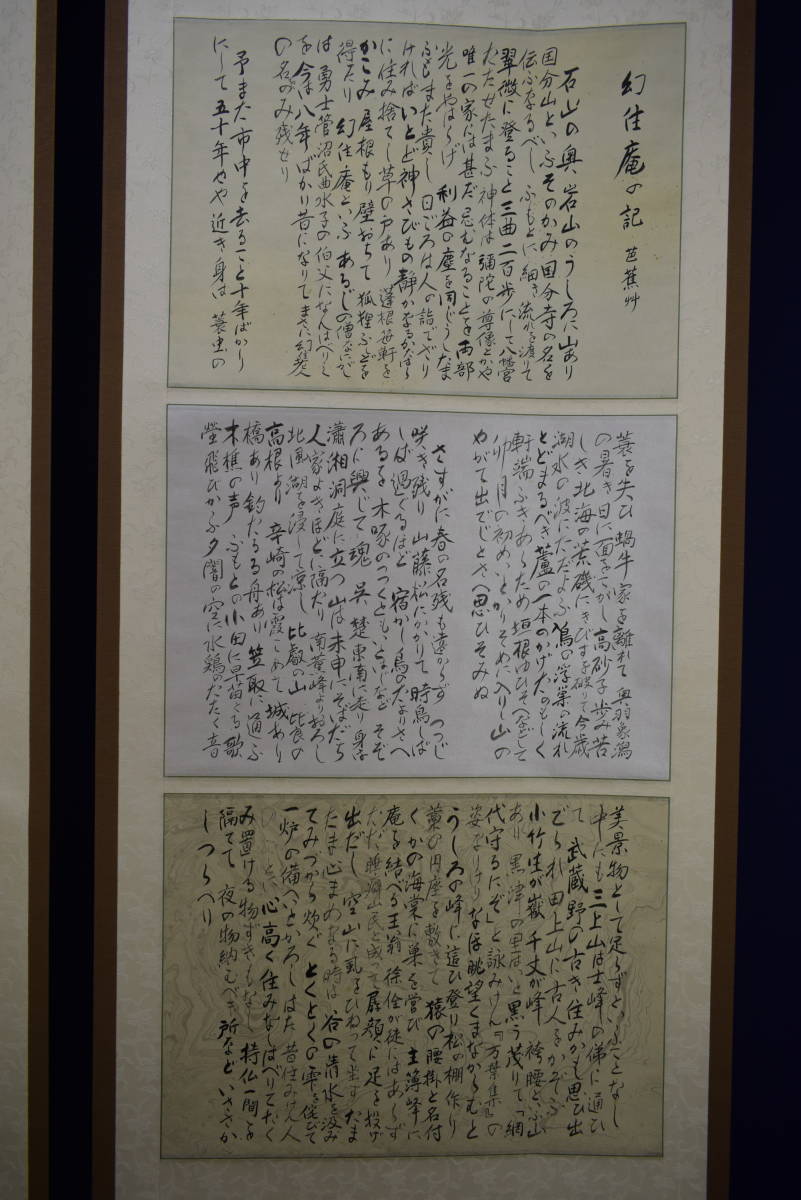 幻住庵の記 芭蕉艸
石山の奥岩山のうしろに山あり
国分山といふそのかみ国分寺の名を
伝ふなるべし ふもとに細き流れを渡りて
翠微に登ること三曲二百歩にして八幡宮
たたせたまふ 神体は彌陀の尊像とかや
唯一の家には甚だ忌むなることを両部
光をやはらげ 利益の塵を同じうしたま
ふもまた貴し 日ごろは人の詣でざり
ければいとど神さびもの静かなるかたはら
に住み捨てし草の戸あり 蓬根笹軒を
かこみ 屋根もり壁おちて 狐狸ふしどを
得たり 幻住庵といふ あるじの僧なにがし
は勇士管沼氏曲水子の伯父になんはべりし
を今は八年ばかり昔になりてまさに幻住老人
の名のみ残せり
予また市中を去ること十年ばかり
にして五十年やや近き身は 蓑虫の
蓑を失ひ 蝸牛家を離れて 奥羽象潟
の暑き日に面をこがし 高砂子歩み苦
しき北海の荒磯にきびすを破りて今歳
湖水の波にただよふ 鳰の浮巣の流れ
とどまるべき蘆の一本のかげたのもしく
軒端ふきあらため垣根ゆひそへなどして
卯月の初めいとかりそめに入りし山の
やがて出でじとさへ思ひそみぬ
さすがに春の名残も遠からず つつじ
咲き残り 山藤松にかかりて 時鳥しば
しば過ぐるほど 宿かし鳥のたよりさへ
あるを 木啄のつつくともいとはじなど そぞ
ろに興じて 魂 呉楚東南に走り 身は
瀟湘洞庭に立つ 山は未申にそばだち
人家よきほどに隔たり 南薫峰よりおろし
北風湖を浸して涼し 比叡の山 比良の
高根より 辛崎の松は霞こめて 城あり
橋あり 釣たるる舟あり 笠取に通ふ
木樵の声 ふもとの小田に早苗とる歌
蛍飛びかふ夕闇の空に水鶏のたたく音
美景物として足らずといふことなし
中にも三上山は士峰の俤に通ひ
て 武蔵野の古き住みかも思ひ出
でられ 田上山に古人をかぞふ
小竹生が嶽 千丈が峰 袴腰といふ山
あり 黒津の里はいと黒う茂りて「網
代守るにぞ」と詠みけん『万葉集』の
姿なりけり なほ眺望くまなからむと
うしろの峰に這ひ登り 松の棚作り
藁の円座を敷きて 猿の腰掛と名付
くかの海棠に巣を営び 主簿峰に
庵を結べる王翁 徐佺が徒にはあらず
ただ睡癖山民と成つて 孱顔に足を投げ
出だし 空山に虱をひねつて坐す たま
たま心まめなる時は 谷の清水を汲み
てみづから炊ぐ とくとくの雫を侘びて
一炉の備へいとかろし はた 昔住みけん人
の ことに心高く住みなしはべりて たく
み置ける物ずきもなし 持仏一間を
隔てて 夜の物納むべき所など いささか
しつらへり